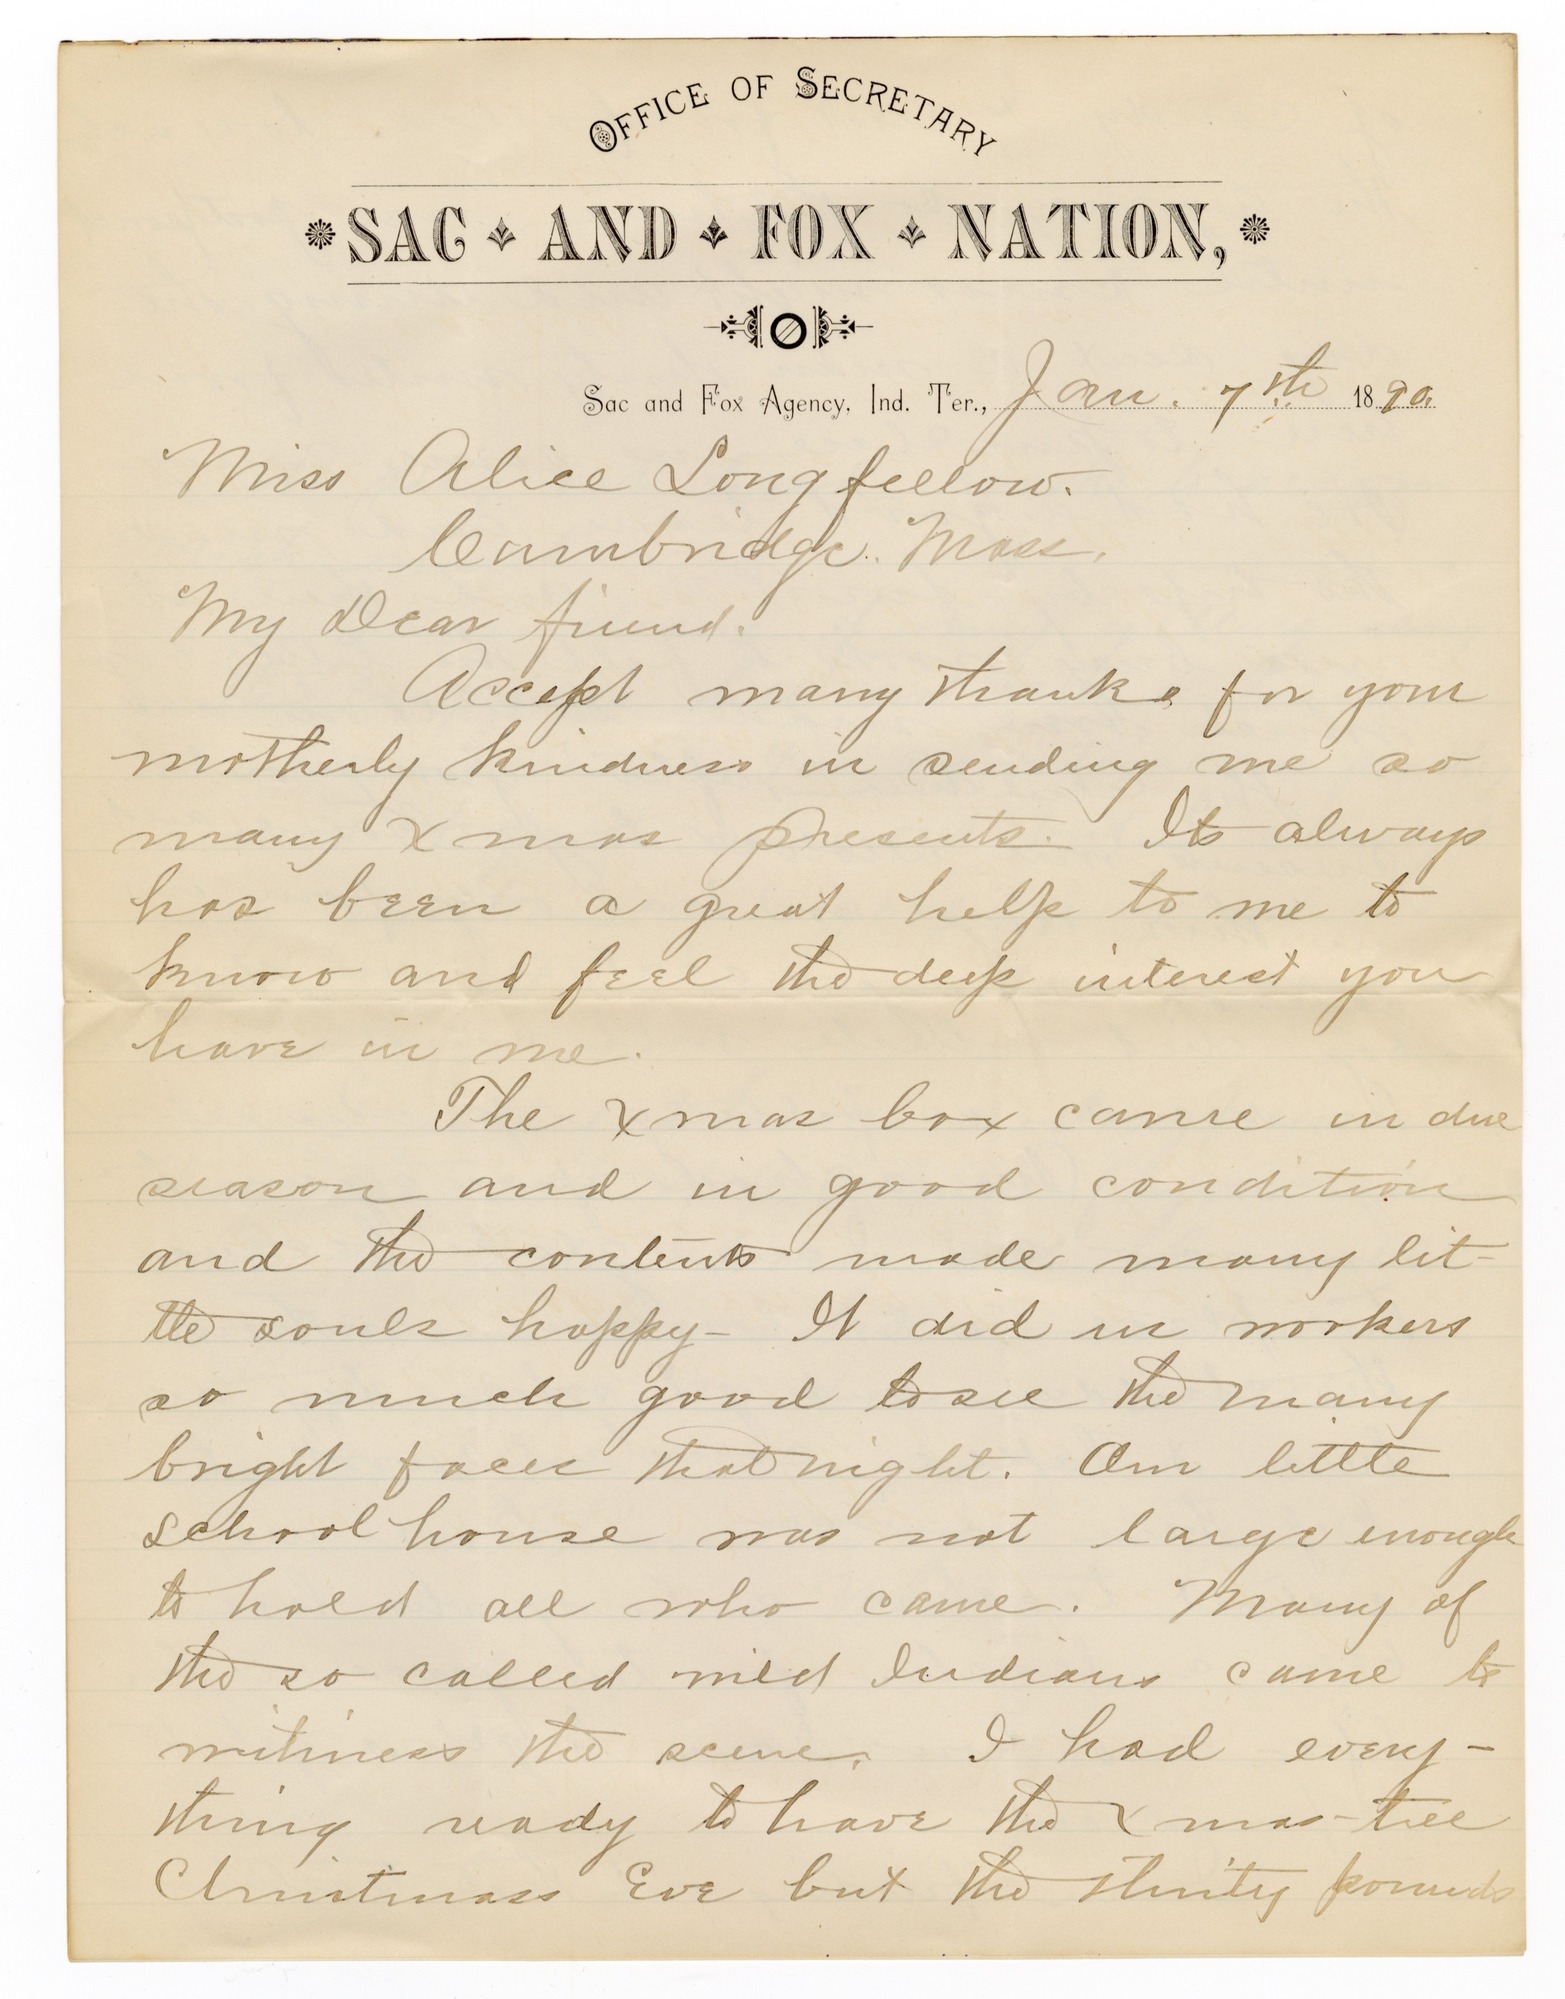 OFFICE OF SECRETARY
SAC AND FOX NATION,
Sac and Fox Agency, Ind. Ter., Jan. 7th 1890.
Miss Alice Longfellow.
Cambridge. Mass.
My Dear friend.
Accept many thanks for your
motherly kindness in sending me so
many Xmas presents. Its always
has been a great help to me to
know and feel the deep interest you
have in me.
The Xmas box came in due
season and in good condition
and the contents made many lit-
tle souls happy - It did us workers
so much good to see the many
bright faces that night. Our little
school house was not large enough
to hold all who came. Many of
the so called wild Indians came to
witness the scene. I had every-
thing ready to have the Xmas-tree
Christmass Eve but the thirty pounds